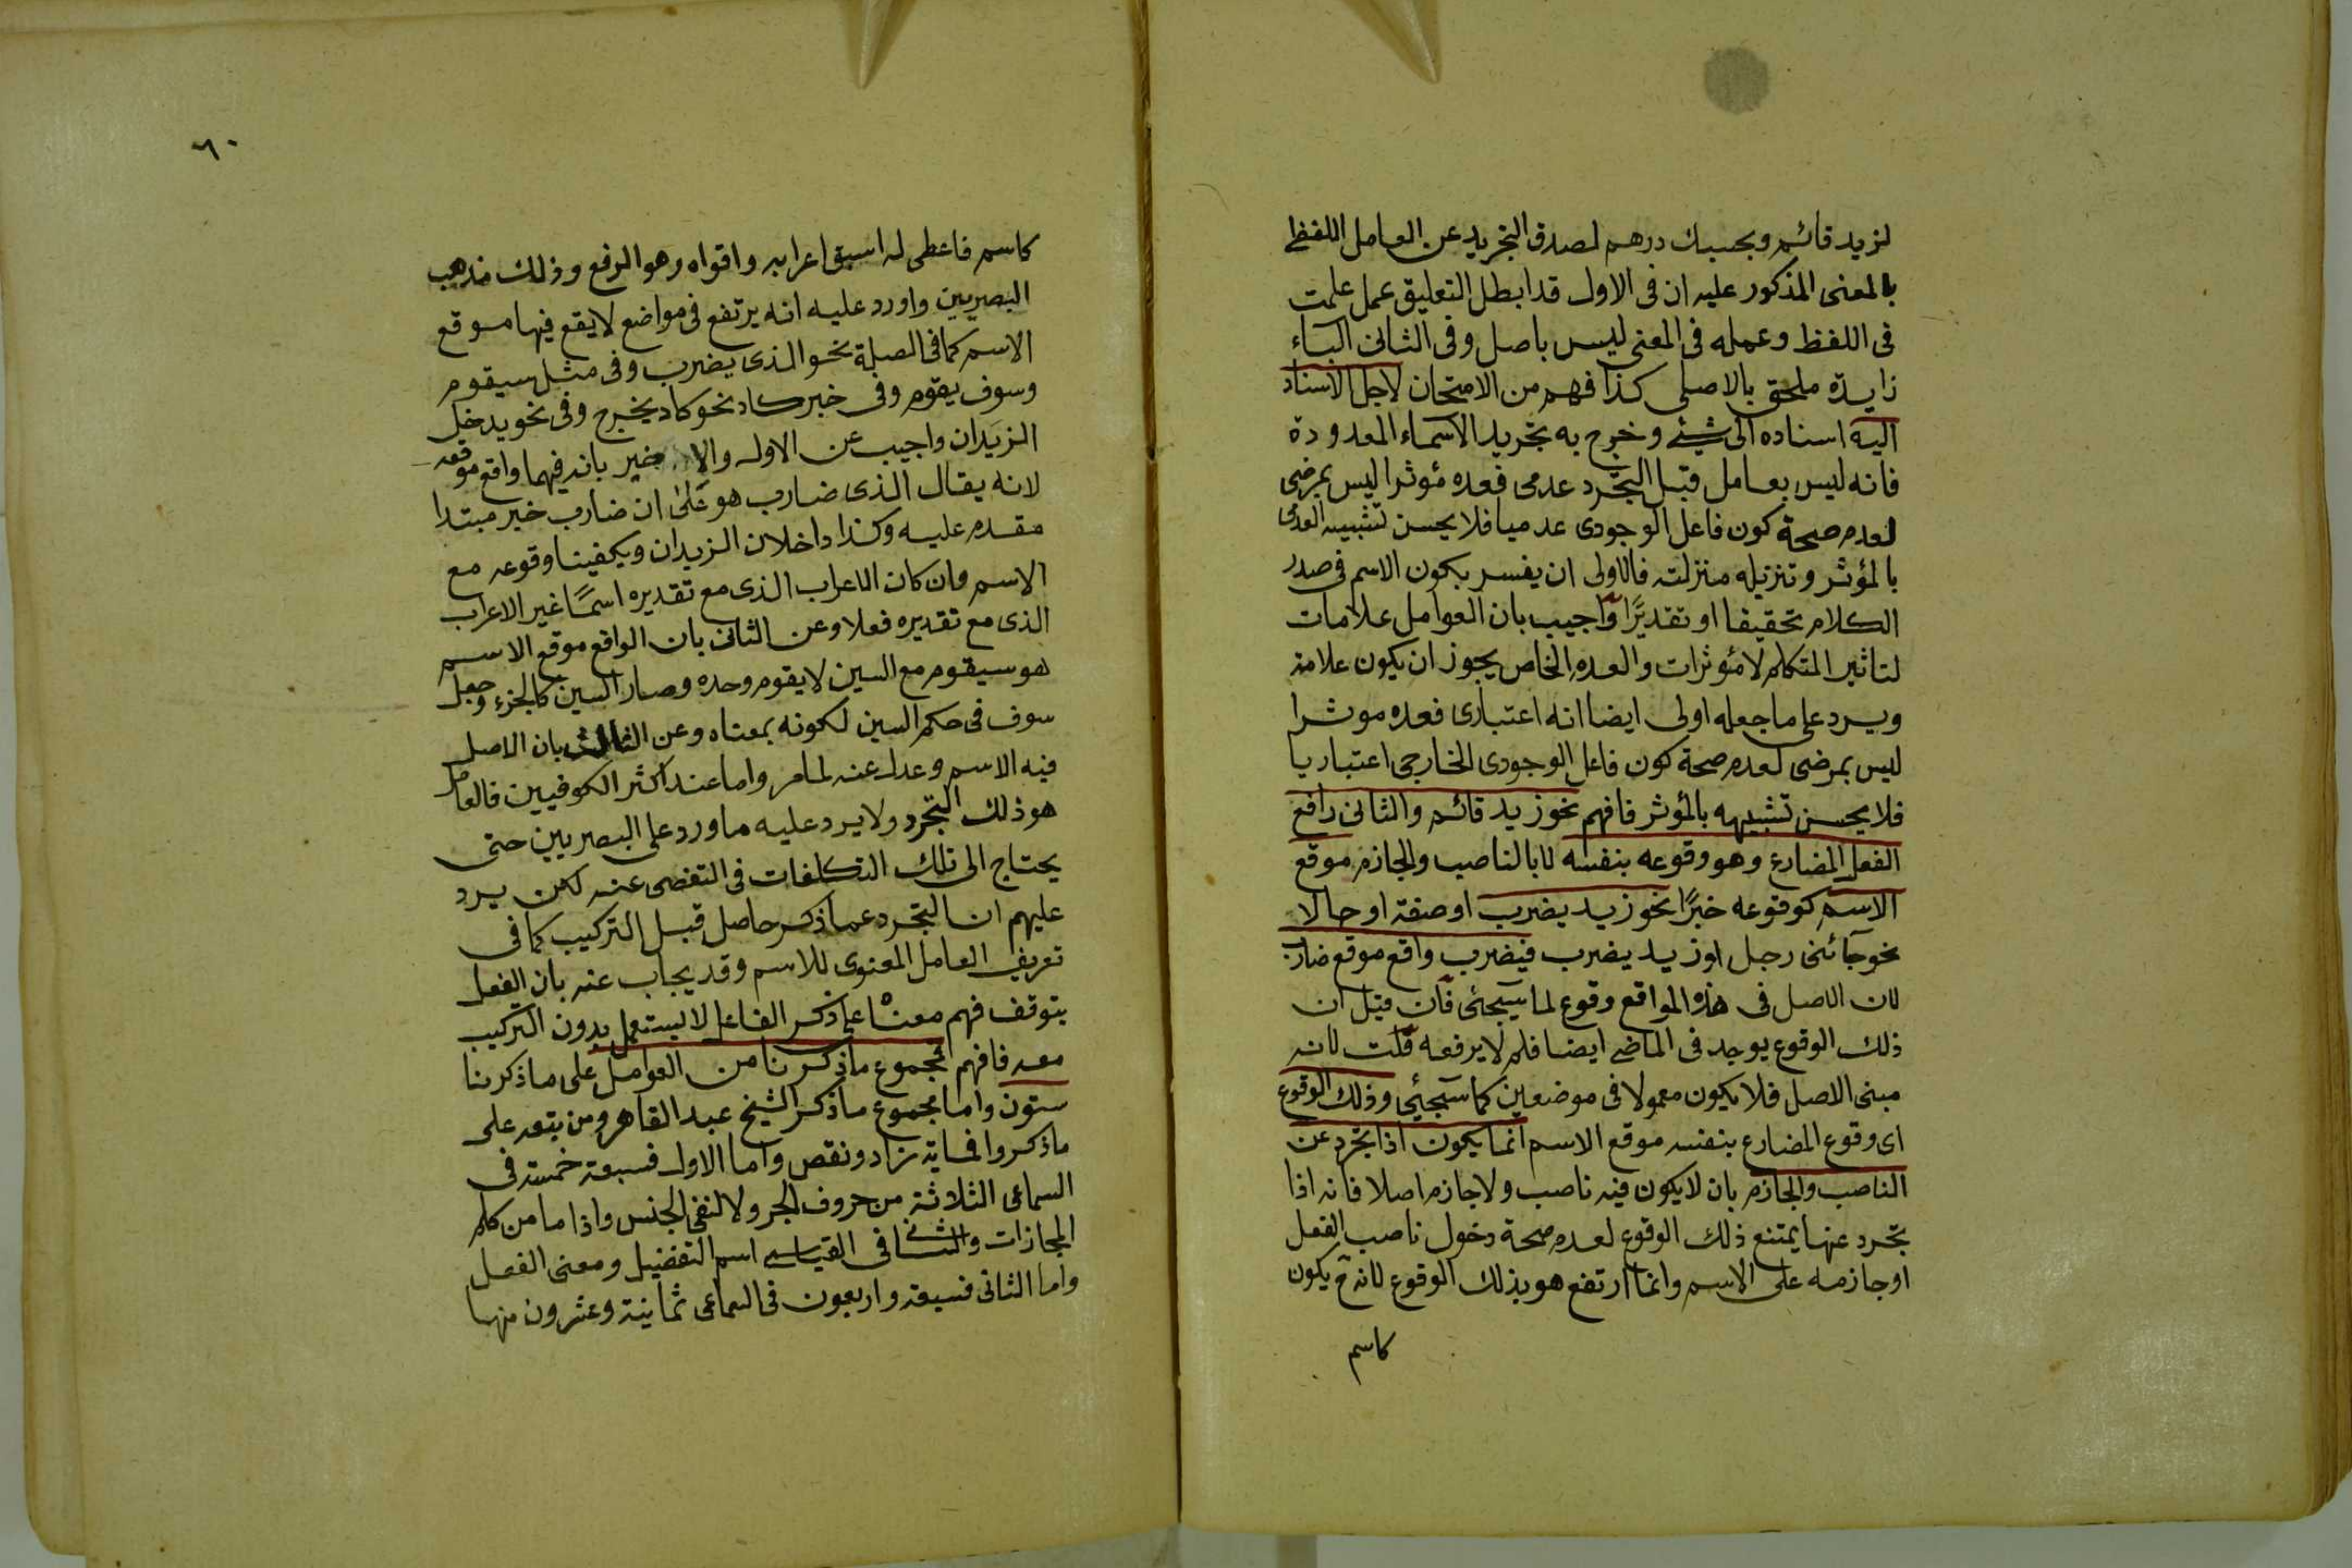 لزيد قائم وبحسبك درهم لصدق التجريد عن العامل اللفظى
بالمعنى المذكور عليه ان فى الاول قد ابطل التعليق عمل علمت
فى اللفظ وعمله فى المعنى ليس باصل وفى الثانى الباء
زايدة ملحق بالاصلى كذا فهم من الامتحان لاجل الاسناد
اليه اسناده الى شئ وخرج به تجريد الاسماء المعدودة
فانه ليس بعامل قيل التجرد عدمى فعده مؤثرا ليس بمرضى
لعدم صحة كون فاعل الوجودى عدميا فلا يحسن تشبيه العدمى
بالمؤثر وتنزيله منزلته فالاولى ان يفسر بكون الاسم فى صدر
الكلام تحقيقا او تقديرًا واجيب بان العوامل علامات
لتاثير المتكلم لا مؤثرات والعدم الخاص يجوز ان يكون علامة
ويرد على ما جعله اولى ايضا انه اعتبارى فعده موثرا
ليس بمرضى لعدم صحة كون فاعل الوجودى الخارجى اعتباريا
فلا يحسن تشبيهه بالمؤثر فافهم نحو زيد قائم والثانى رافع
الفعل المضارع وهو وقوعه بنفسه لا بالناصب والجازم موقع
الاسم كوقوعه خبرًا نحو زيد يضرب او صفة او حالا
نحو جآئنى رجل او زيد يضرب فيضرب واقع موقع ضارب
لان الاصل فى هذه المواقع وقوع لما سيجئى فان قيل ان
ذلك الوقوع يوجد فى الماضى ايضا فلم لا يرفعه قلت لانه
مبنى الاصل فلا يكون معمولا فى موضعين كما سيجئى وذلك الوقوع
اى وقوع المضارع بنفسه موقع الاسم انما يكون اذا تجرد عن
الناصب والجازم بان لا يكون فيه ناصب ولا جازم اصلا فانه اذا
تجرد عنها يمتنع ذلك الوقوع لعدم صحة دخول ناصب الفعل
او جازمه على الاسم وانما ارتفع هو بذلك الوقوع لانه ح يكون
كاسم
٦٠
كاسم فاعطى له اسبق اعرابه واقواه وهو الرفع وذلك مذهب
البصريين واورد عليه انه يرتفع فى مواضع لا يقع فيها موقع
الاسم كما فى الصلة نحو الذى يضرب وفى مثل سيقوم
وسوف يقوم وفى خبر كاد نحو كاد يخرج وفى نحو يدخل
الزيدان واجيب عن الاول والاخير بانه فيهما واقع موقعه
لانه يقال الذى ضارب هو على ان ضارب خبر مبتدا
مقدم عليه وكذا داخلان الزيدان ويكفينا وقوعه مع
الاسم وان كان الاعراب الذى مع تقديره اسمًا غير الاعراب
الذى مع تقديره فعلا وعن الثانى بان الواقع موقع الاسم
هو سيقوم مع السين لا يقوم وحده وصار السين كالجزء وجعل
سوف فى حكم السين لكونه بمعناه وعن الثالث بان الاصل
فيه الاسم وعدل عنه لما مر واما عند اكثر الكوفيين فالعامل
هو ذلك التجرد ولا يرد عليه ما ورد على البصريين حتى
يحتاج الى تلك التكلفات فى التفصى عنه لكن يرد
عليهم ان التجرد عما ذكر حاصل قبل التركيب كما فى
تعريف العامل المعنوى للاسم وقد يجاب عنه بان الفعل
يتوقف فهم معناه على ذكر الفاعل لا يستعمل بدون التركيب
معه فافهم فمجموع ما ذكرنا من العوامل على ما ذكرنا
ستون واما مجموع ما ذكر الشيخ عبد القاهر ومن تبعه على
ما ذكروا فماية زاد ونقص واما الاول فسبعة خمسة فى
السماعى الثلاثة من حروف الجر ولا لنفى الجنس واذا ما من كلم
المجازات والثنا فى القياسى اسم التفضيل ومعنى الفعل
واما الثانى فسبعة واربعون فى السماعى ثمانية وعشرون منها